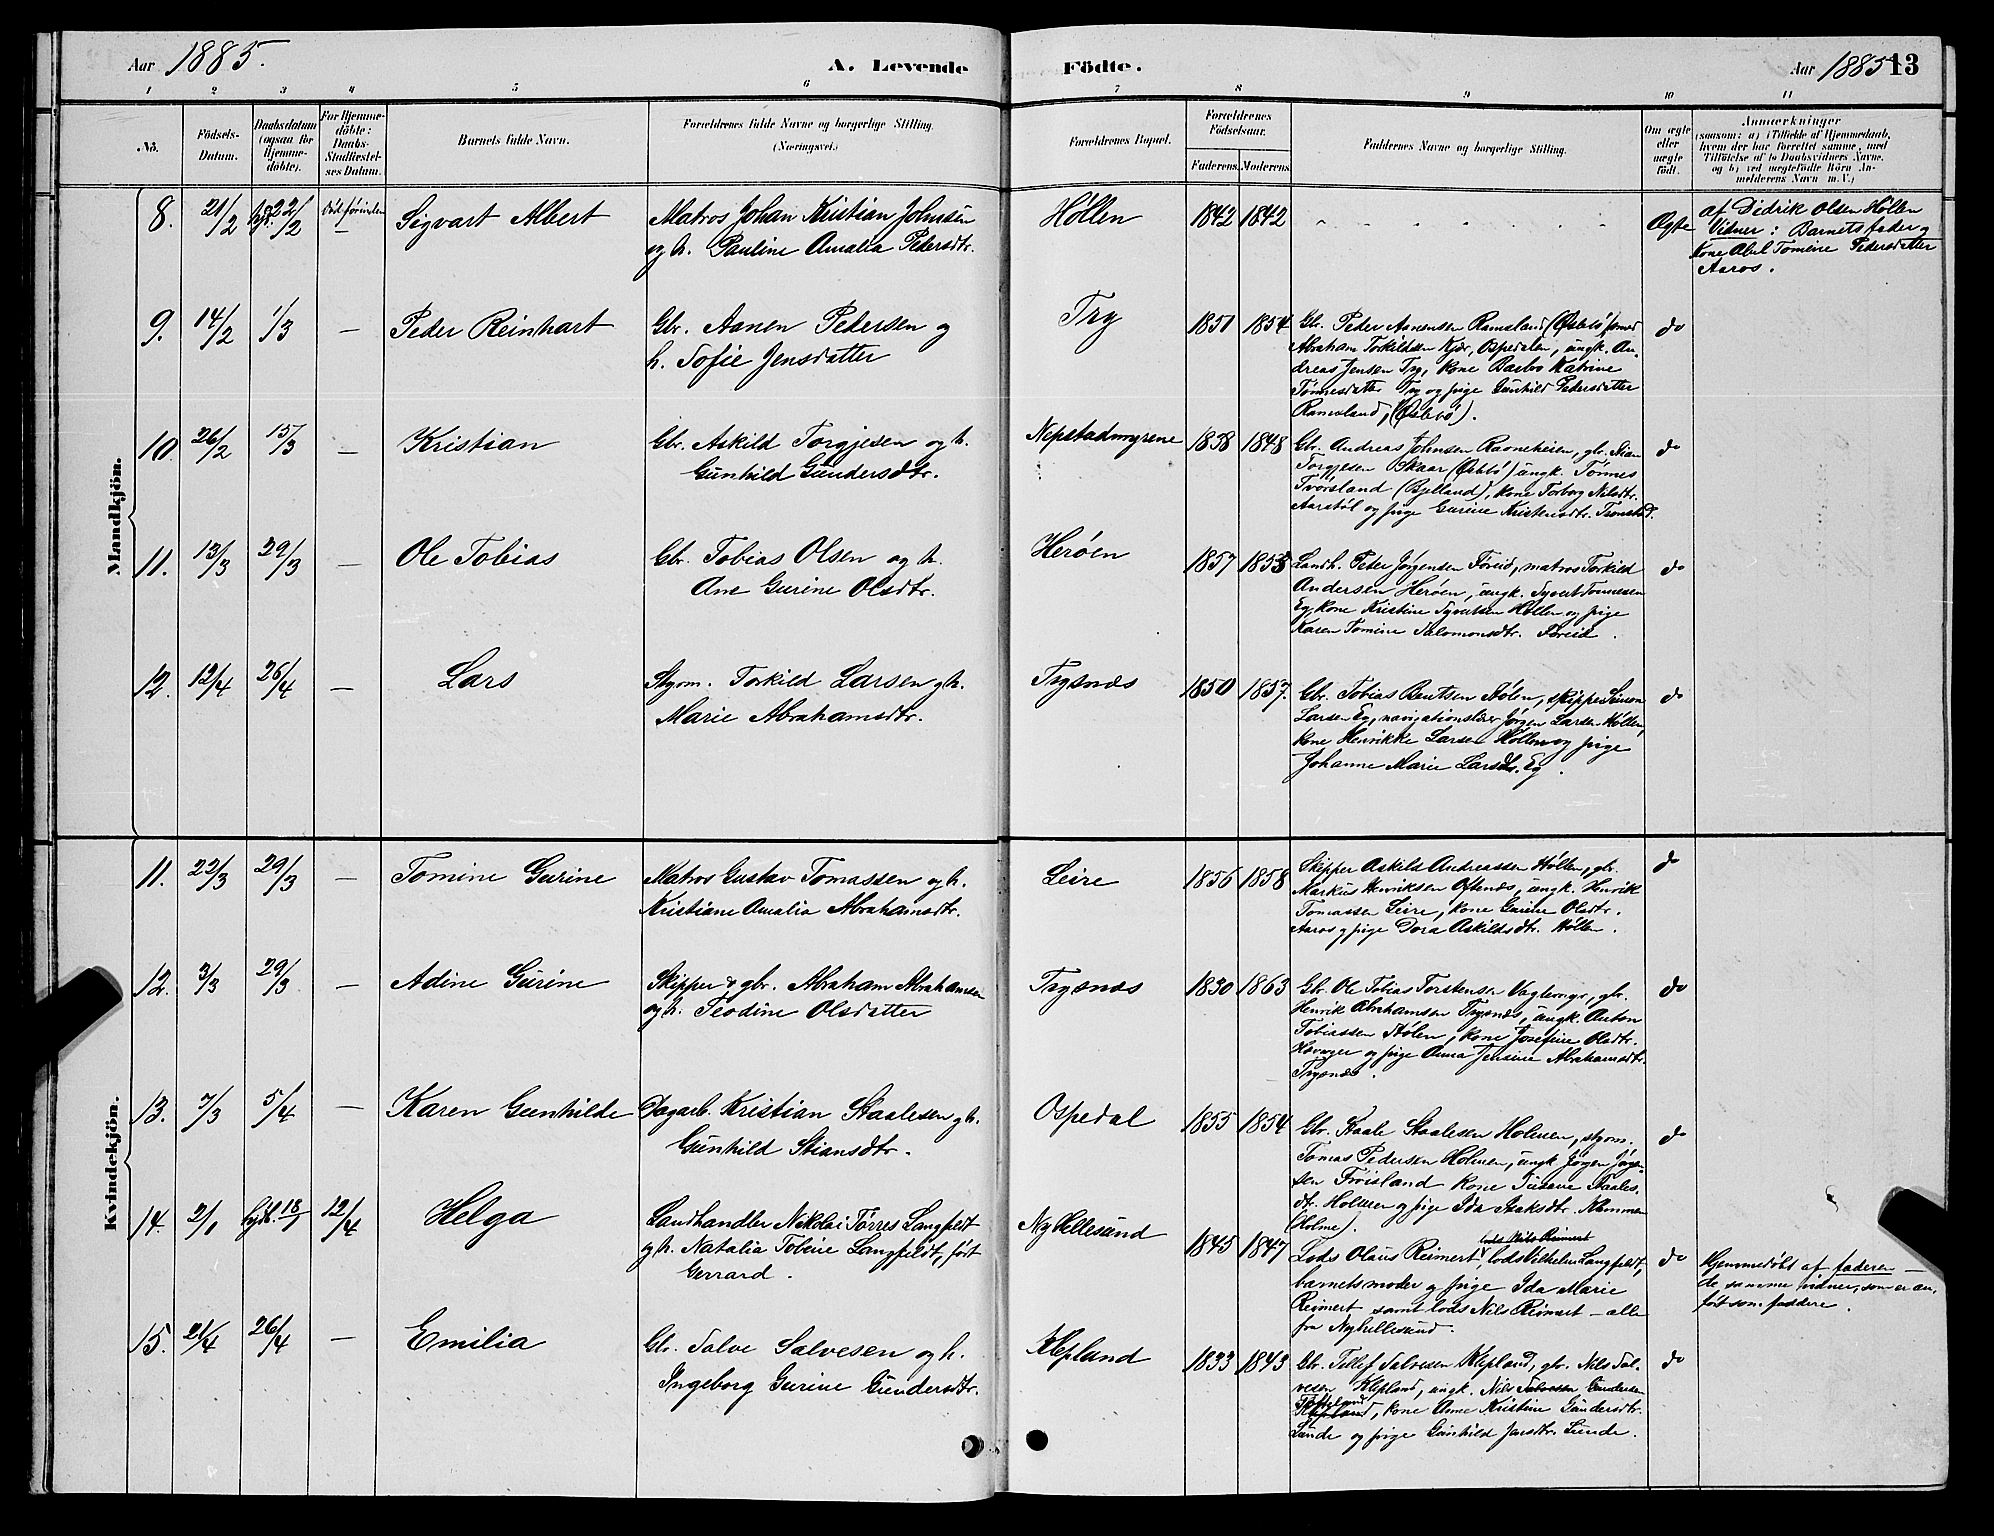 Aar 1885.
A. Levende Födte.
Aar 1885 13
1 2 3 4 5 6 7 8 9 10 11
No.
Födsels-Datum.
Daabsdatum (ogsaa for Hjemme-döbte).
For Hjemme-döbte: Daabs-Stadfæstel-ses Datum.
Barnets fulde Navn.
Forældrenes fulde Navne og borgerlige Stilling. (Næringsvei.)
Forældrenes Bopæl.
Forældrenes Födselsaar.
Faderens. Moderens.
Faddernes Navne og borgerlige Stilling.
Om ægte eller uægte födt.
Anmærkninger
(saasom: a) i Tilfælde af Hjemmedaab,
hvem der har forrettet samme, med
Tilföielse af to Daabsvidners Navne,
og b) ved uægtefödte Börn An-
melderens Navn m. V.)
Mandkjön.
8. 21/2 hjd. 22/2 död forinden Sigvart Albert
Matros Johan Kristian Johnsen
og h. Pauline Amalia Pedersdtr.
Høllen 1842 1842
Ægte
af Didrik Olsen Høllen
Vidner: Barnets fader og
Kone Abel Tomine Pedersdatter
Aaros.
9. 14/2 1/3 — Peder Reinhart
Gbr. Aanen Pedersen og
h. Sofie Jensdatter
Try 1851 1854
Gbr. Peder Aanensen Ramsland (Øslebø)
Abraham Torkildsen Kjær, Ospedalen, ungk. An-
dreas Jensen Try, kone Barbro Katrine
Tønnesdatter Try og pige Gunhild Pedersdatter
Ramsland, (Øslebø).
do
10. 26/2 15/3 — Kristian
Gbr. Askild Torgjesen og h.
Gunhild Gundersdtr.
Nepstadmyrene 1838 1848
Gbr. Andreas Johnsen Ravneheien, gbr. Stian
Torgjesen Skaar (Øslebø) ungk. Tønnes
Tvørsland (Bjelland), kone Torborg Nilsdtr.
Aarstøl og pige Gurine Kristensdtr. Tronstad.
do
11. 13/3 29/3 — Ole Tobias
Gbr. Tobias Olsen og h.
Ane Gurine Olsdtr.
Herøen 1857 1853
Landh. Peder Jørgensen Foreid, matros Torkild
Andersen Herøen, ungk. Syvert Tønnesen
Eg, kone Kristine Syvertsen Høllen og pige
Karen Tomine Salomonsdtr. Foreid.
do
12. 12/4 26/4 — Lars
Stgom. Torkild Larsen g h.
Marie Abrahamsdtr.
Trysnæs 1850 1857.
Gbr. Tobias Bentsen Stølen, skipper Simon
Larsen Eg, navigationslærer Jørgen Larsen Høllen,
kone Henrikke Larsen Høllen og pige
Johanne Marie Larsdtr. Eg.
do
Kvindekjön.
11. 22/3 29/3 — Tomine Gurine
Matros Gustav Tomassen og h.
Kristiane Amalia Abrahamsdtr.
Leire 1856 1858
Skipper Askild Andreassen Høllen, gbr.
Markus Henriksen Oftenæs, ungk. Henrik
Tomassen Leire, kone Gurine Olsdtr.
Aaros g pige Dora Askildsdtr. Høllen.
do
12. 3/3 29/3 — Adine Gurine
Skipper & gbr. Abraham Abrahamsen
og h. Teodine Olsdatter
Trysnæs 1830 1863
Gbr. Ole Tobias Torstensen Vagtemyr, gbr.
Henrik Abrahamsen Trysnæs, ungk. Anton
Tobiassen Stølen, kone Josefine Olsdtr.
og pige Anna Jensine Abrahamsdtr.
Trysnæs.
do
13. 7/3 5/4 — Karen Gunhilde
Dagarb. Kristian Staalesen g h.
Gunhild Stiansdtr.
Ospedal 1855 1854
Gbr. Staale Staalesen Holmen, stgom.
Tomas Pedersen Holmen, ungk. Jørgen Jørgen-
sen Frøisland kone Susane Staales-
dtr. Holmen g pige Ida Isaksdtr.
(Holme).
do
14. 2/1 hjdb. 18/1 12/4 Helga
Landhandler Nikolai Tørres Langfeldt
og h. Natalia Tobine Langfeldt, født
Gerrard.
Ny Hellesund 1845 1847
lods Nils Reimert
Lods Olaus Reimert, lods Vilhelm Langfeldt,
barnets moder g pige Ida Marie
Reimert samt lods Nils Reimert — alle
fra Nyhellesund.
do
Hjemmedøbt af faderen —
de samme vidner, som er an-
ført som faddere.
15. 21/4 26/4 — Emilia
Gbr. Salve Salvesen og h.
Ingeborg Gurine Gundersdtr.
Klepland 1833 1843
Gbr. Tellef Salvesen Klepland, gbr. Nils Sal-
vesen Klepland, ungk. Nils Salvesen Gundersen
Klepland, kone Anne Kristine Gundersdtr.
Lunde og pige Gunhild Jansdtr. Lunde.
do